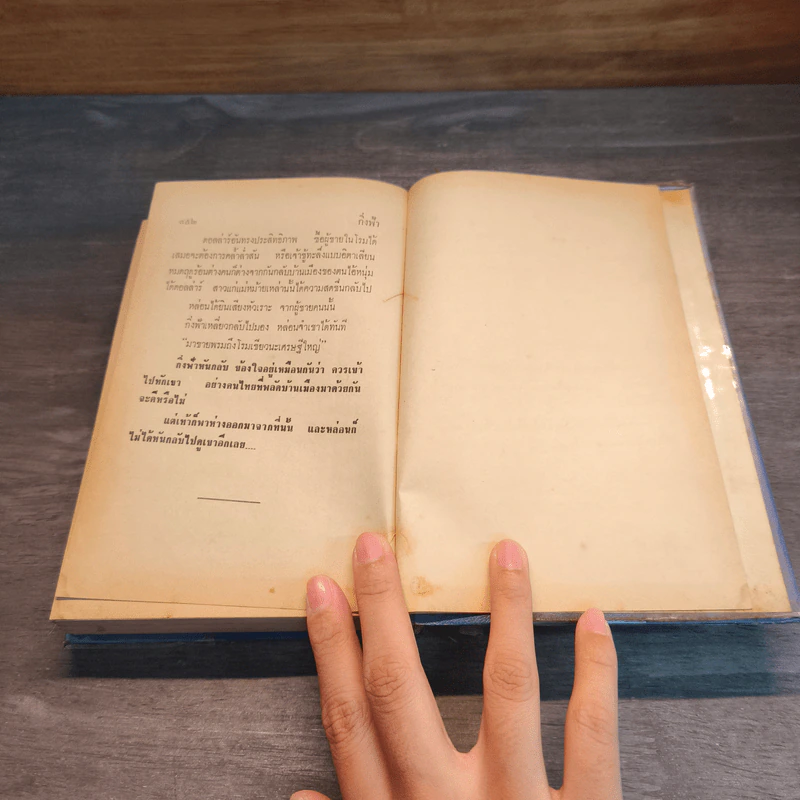 กิ่งฟ้า
ดอลล่าร์อันทรงประสิทธิภาพ ซื้อผู้ชายในโรมได้
เสมอจะต้องการคล้ำล่ำสัน หรือเจ้าชู้ทะลึ่งแบบอิตาเลียน
หมดฤดูร้อนต่างคนก็ต่างจากกันกลับบ้านเมืองของตน ไอ้หนุ่ม
ได้ดอลล่าร์ สาวแก่แม่หม้ายเหล่านั้นได้ความสดชื่นกลับไป
หล่อนได้ยินเสียงหัวเราะ จากผู้ชายคนนั้น
กิ่งฟ้าเหลียวกลับไปมอง หล่อนจำเขาได้ทันที
"มาขายพรมถึงโรมเชียวนะเศรษฐีใหญ่"
กิ่งฟ้าหันกลับ ข้องใจอยู่เหมือนกันว่า ควรเข้า
ไปทักเขา อย่างคนไทยที่พลัดบ้านเมืองมาด้วยกัน
จะดีหรือไม่
แต่เท้าก็พาห่างออกมาจากที่นั้น และหล่อนก็
ไม่ได้หันกลับไปดูเขาอีกเลย....